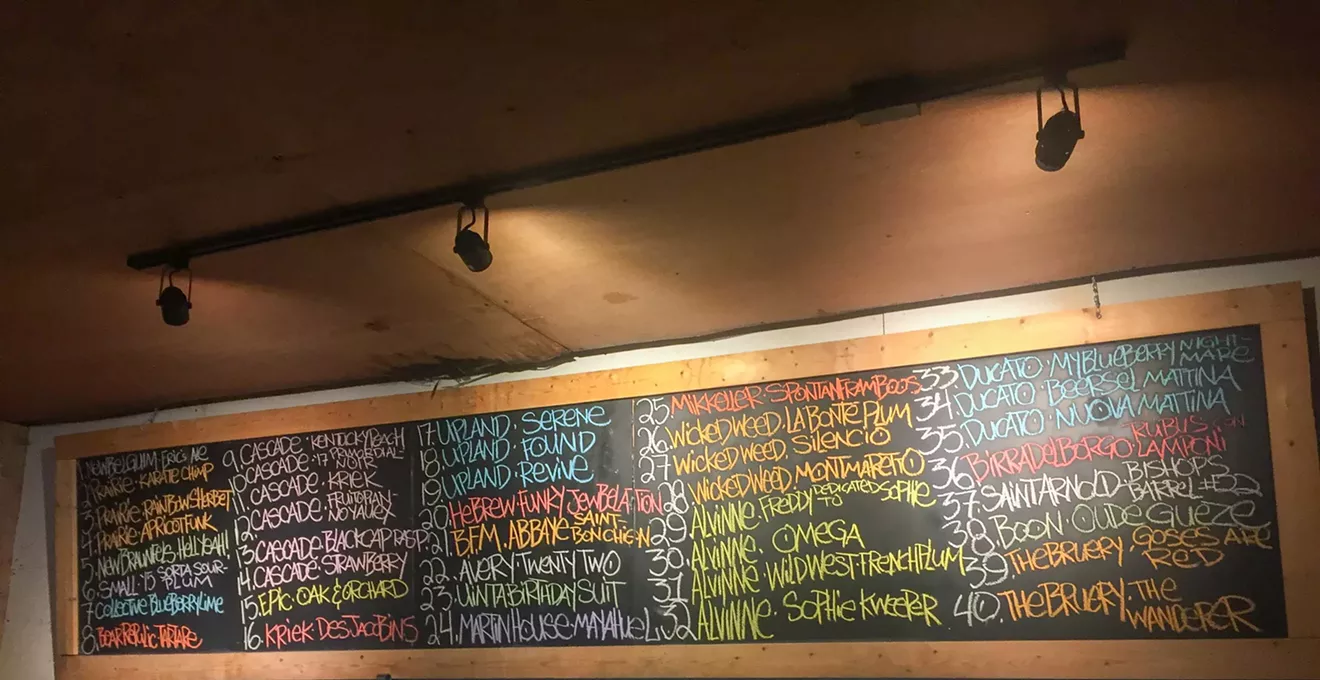 1. NEW BELGIUM
2. PRAIRIE · KARATE CHIMP
3. PRAIRIE · RAINBOW SHERBET
4. PRAIRIE · APRICOT FUNK
5. NEW BRAUNFELS HELL YEAH!
6. SMALL · '15 SORTA SOUR-
PLUM
7. COLLECTIVE BLUEBERRY LIME
8. BEAR REPUBLIC TARTARE
9. CASCADE · KENTUCKY PEACH
10. CASCADE · '17 PRIMORDIAL-
NOIR
11. CASCADE · KRIEK
12. CASCADE · FRUIT
13. CASCADE · BLACKCAP RASP.
14. CASCADE · STRAWBERRY
15. EPIC · OAK & ORCHARD
16. KRIEK DES JACOBINS
17. UPLAND · SERENE
18. UPLAND · FOUND
19. UPLAND · REVIVE
20. HEBREW · FUNKY JEWBELATION
21. BFM. ABBAYE-SAINT-
BON CHIEN
22. AVERY · TWENTY TWO
23. UINTA BIRTHDAY SUIT
24. MARTIN HOUSE · MAYAHUEL
25. MIKKELLER · SPONTANFRAMBOOS
26. WICKED WEED. LA BONTE PLUM
27. WICKED WEED. SILENCIO
28. WICKED WEED. MONTMARETTO
29. ALVINNE · FREDDY DEDICATED TO SOPHIE
30. ALVINNE. OMEGA
31. ALVINNE · WILD WEST-FRENCH PLUM
32. ALVINNE · SOPHIE KWEEPER
33. DUCATO · MY BLUEBERRY NIGHT-
MARE
34. DUCATO · BEERSEL MATTINA
35. DUCATO · NUOVA MATTINA
36. BIRRA DEL BORGO · RUBUS
LAMPONI
37. SAINT ARNOLD · BISHOPS
BARREL #22
38. BOON · OUDE GUEZE
39. THE BRUERY · GOSES ARE
RED
40. THE BRUERY · THE
WANDERER